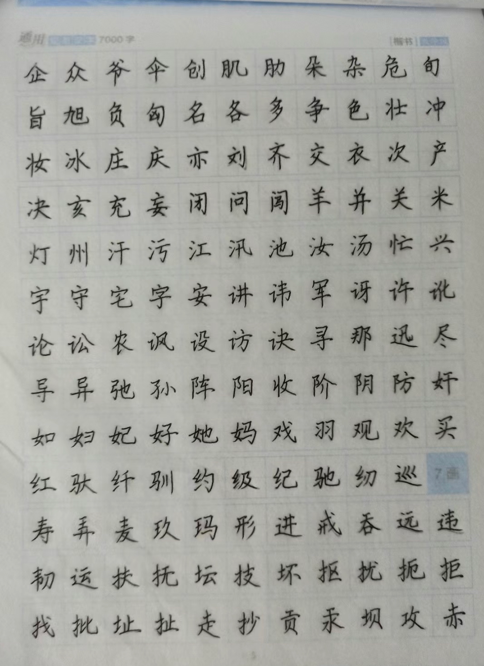 通用规范汉字7000字 楷书
企众爷伞创肌肋朵杂危旬
旨旭负匈名各多争色壮冲
妆冰庄庆亦刘齐交衣次产
决亥充妄闭问闯羊并关米
灯州汗污江汛池汝汤忙兴
宇守宅字安讲讳军讶许讹
论讼农讽设访诀寻那迅尽
导异弛孙阵阳收阶阴防奸
如妇妃好她妈戏羽观欢买
红驮纤驯约级纪驰纫巡 7画
寿弄麦玖玛形进戒吞远违
韧运扶抚坛技坏抠扰扼拒
找批址扯走抄贡汞坝攻赤
5